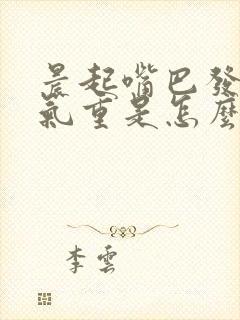 晨起嘴巴發
氣重是怎麼
李雲